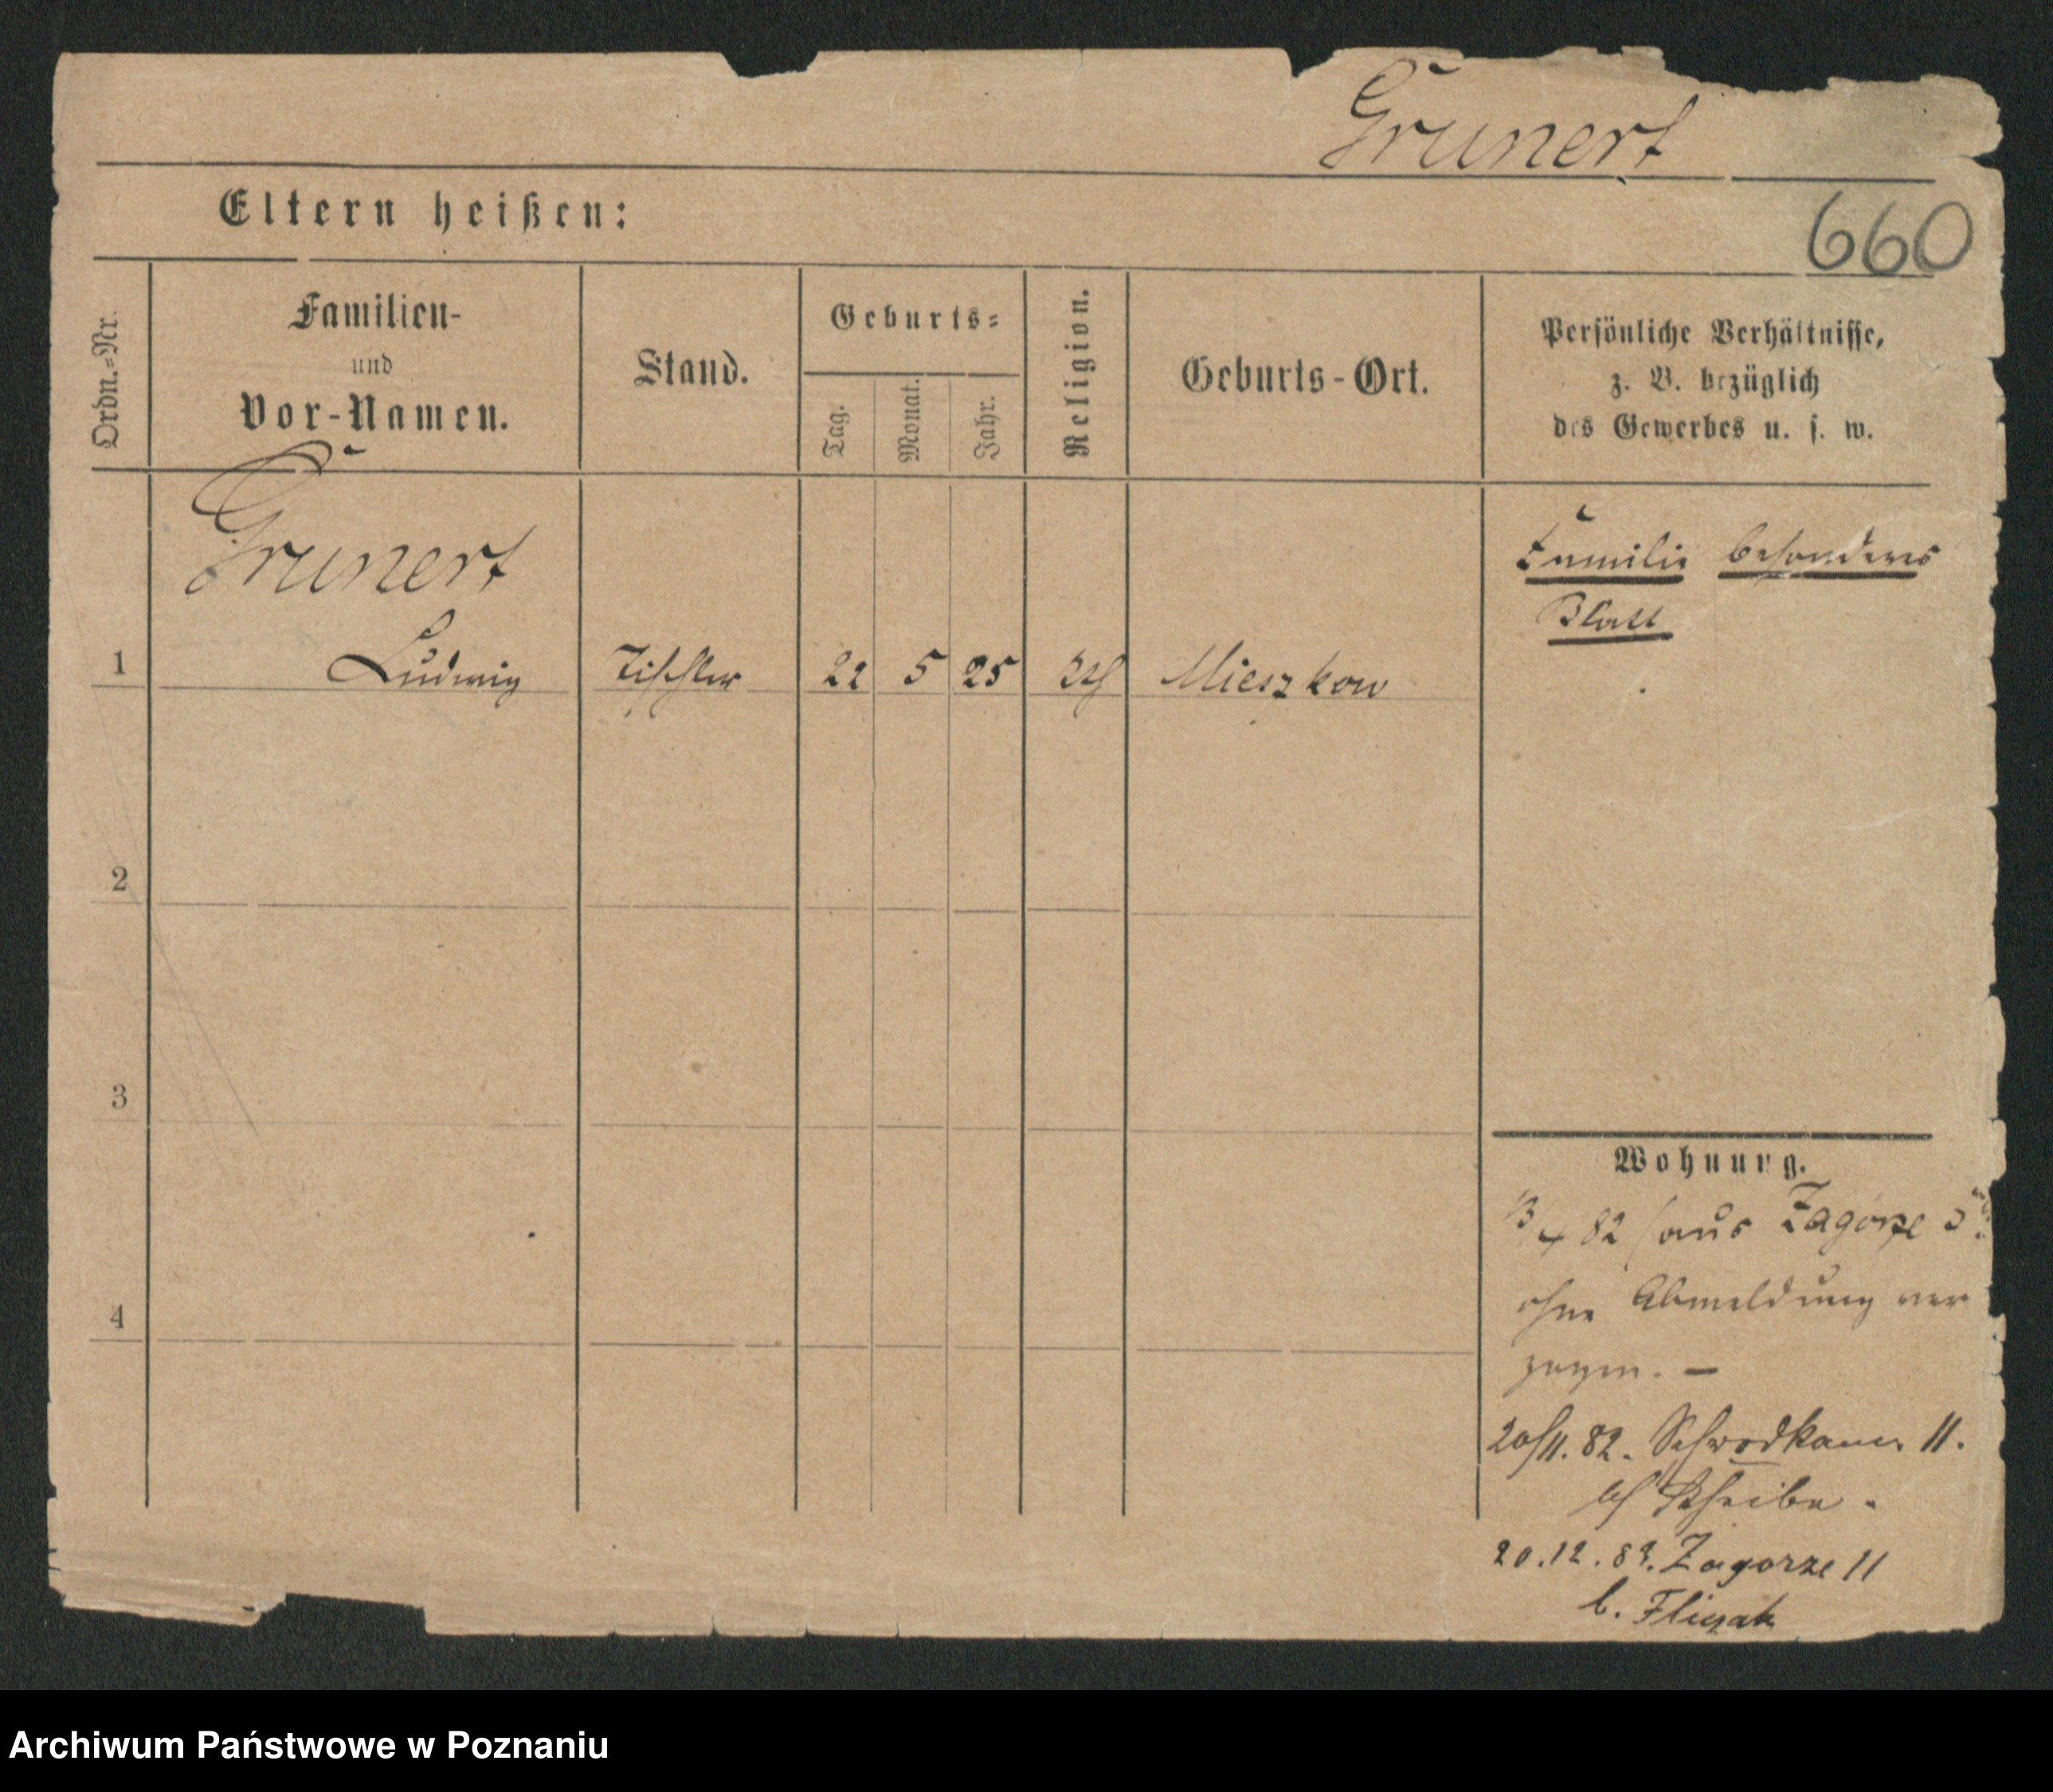 Grunert
Eltern heißen:
660
Ordn.=Nr.
Familien-
und
Vor-Namen.
Stand.
Geburts=
Tag.
Monat.
Jahr.
Religion.
Geburts-Ort.
Persönliche Verhältnisse,
z. B. bezüglich
des Gewerbes u. s. w.
Grunert
Familie besonderes
Blatt
1 Ludwig Tischler 22 5 25 Mieszkow
2
3
4
Wohnung.
82 (aus Zagorze 5
ohne Abmeldung ver
zogen. —
20/11. 82. Schrodkaer 11.
b/ Scheibe.
20.12.83. Zagorze 11
b. Fliezak
Archiwum Państwowe w Poznaniu